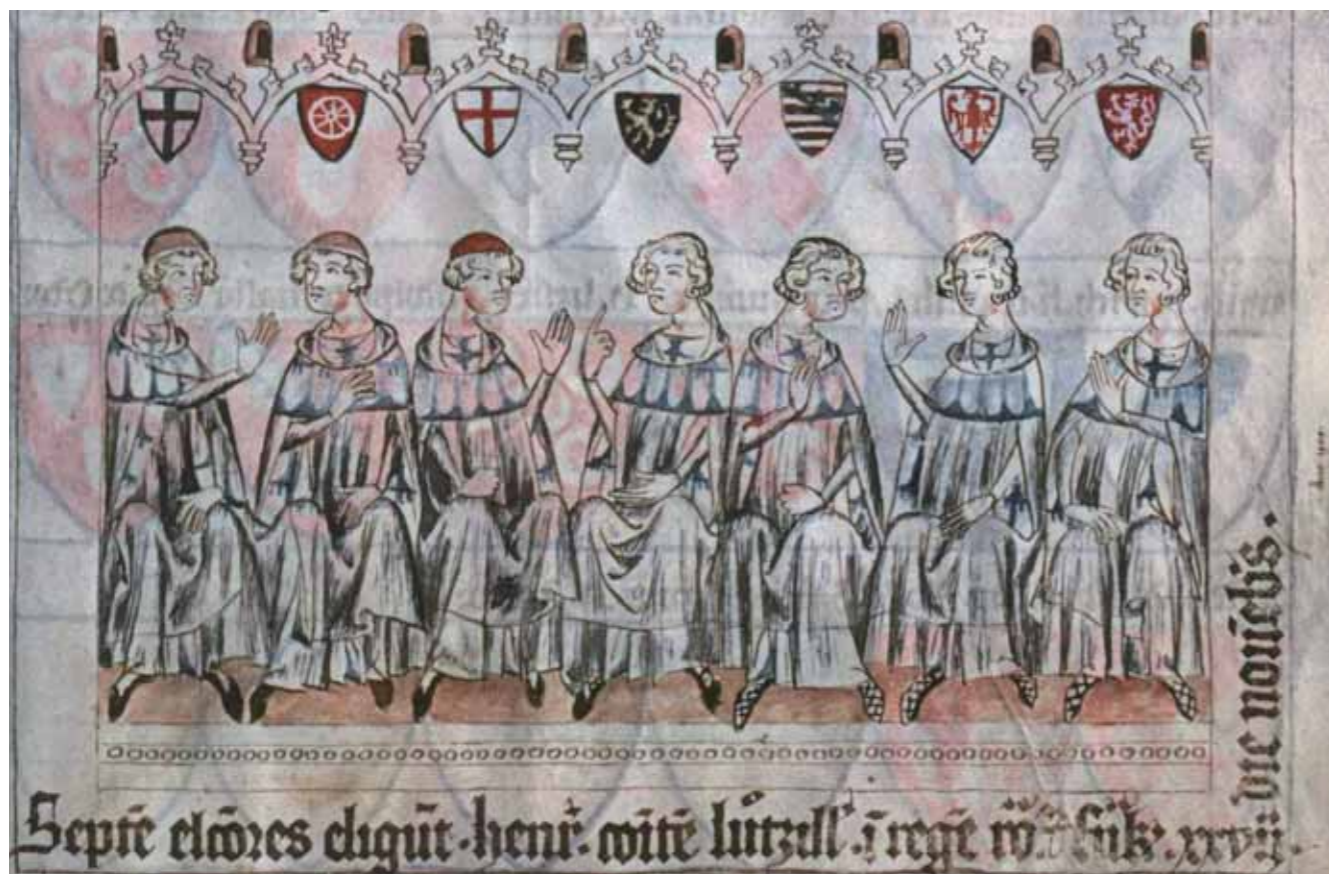 Septē elcōres eligūt · henr̄ · cōitē lutzill' · ī regē · xxvii ·
die nouēbis ·